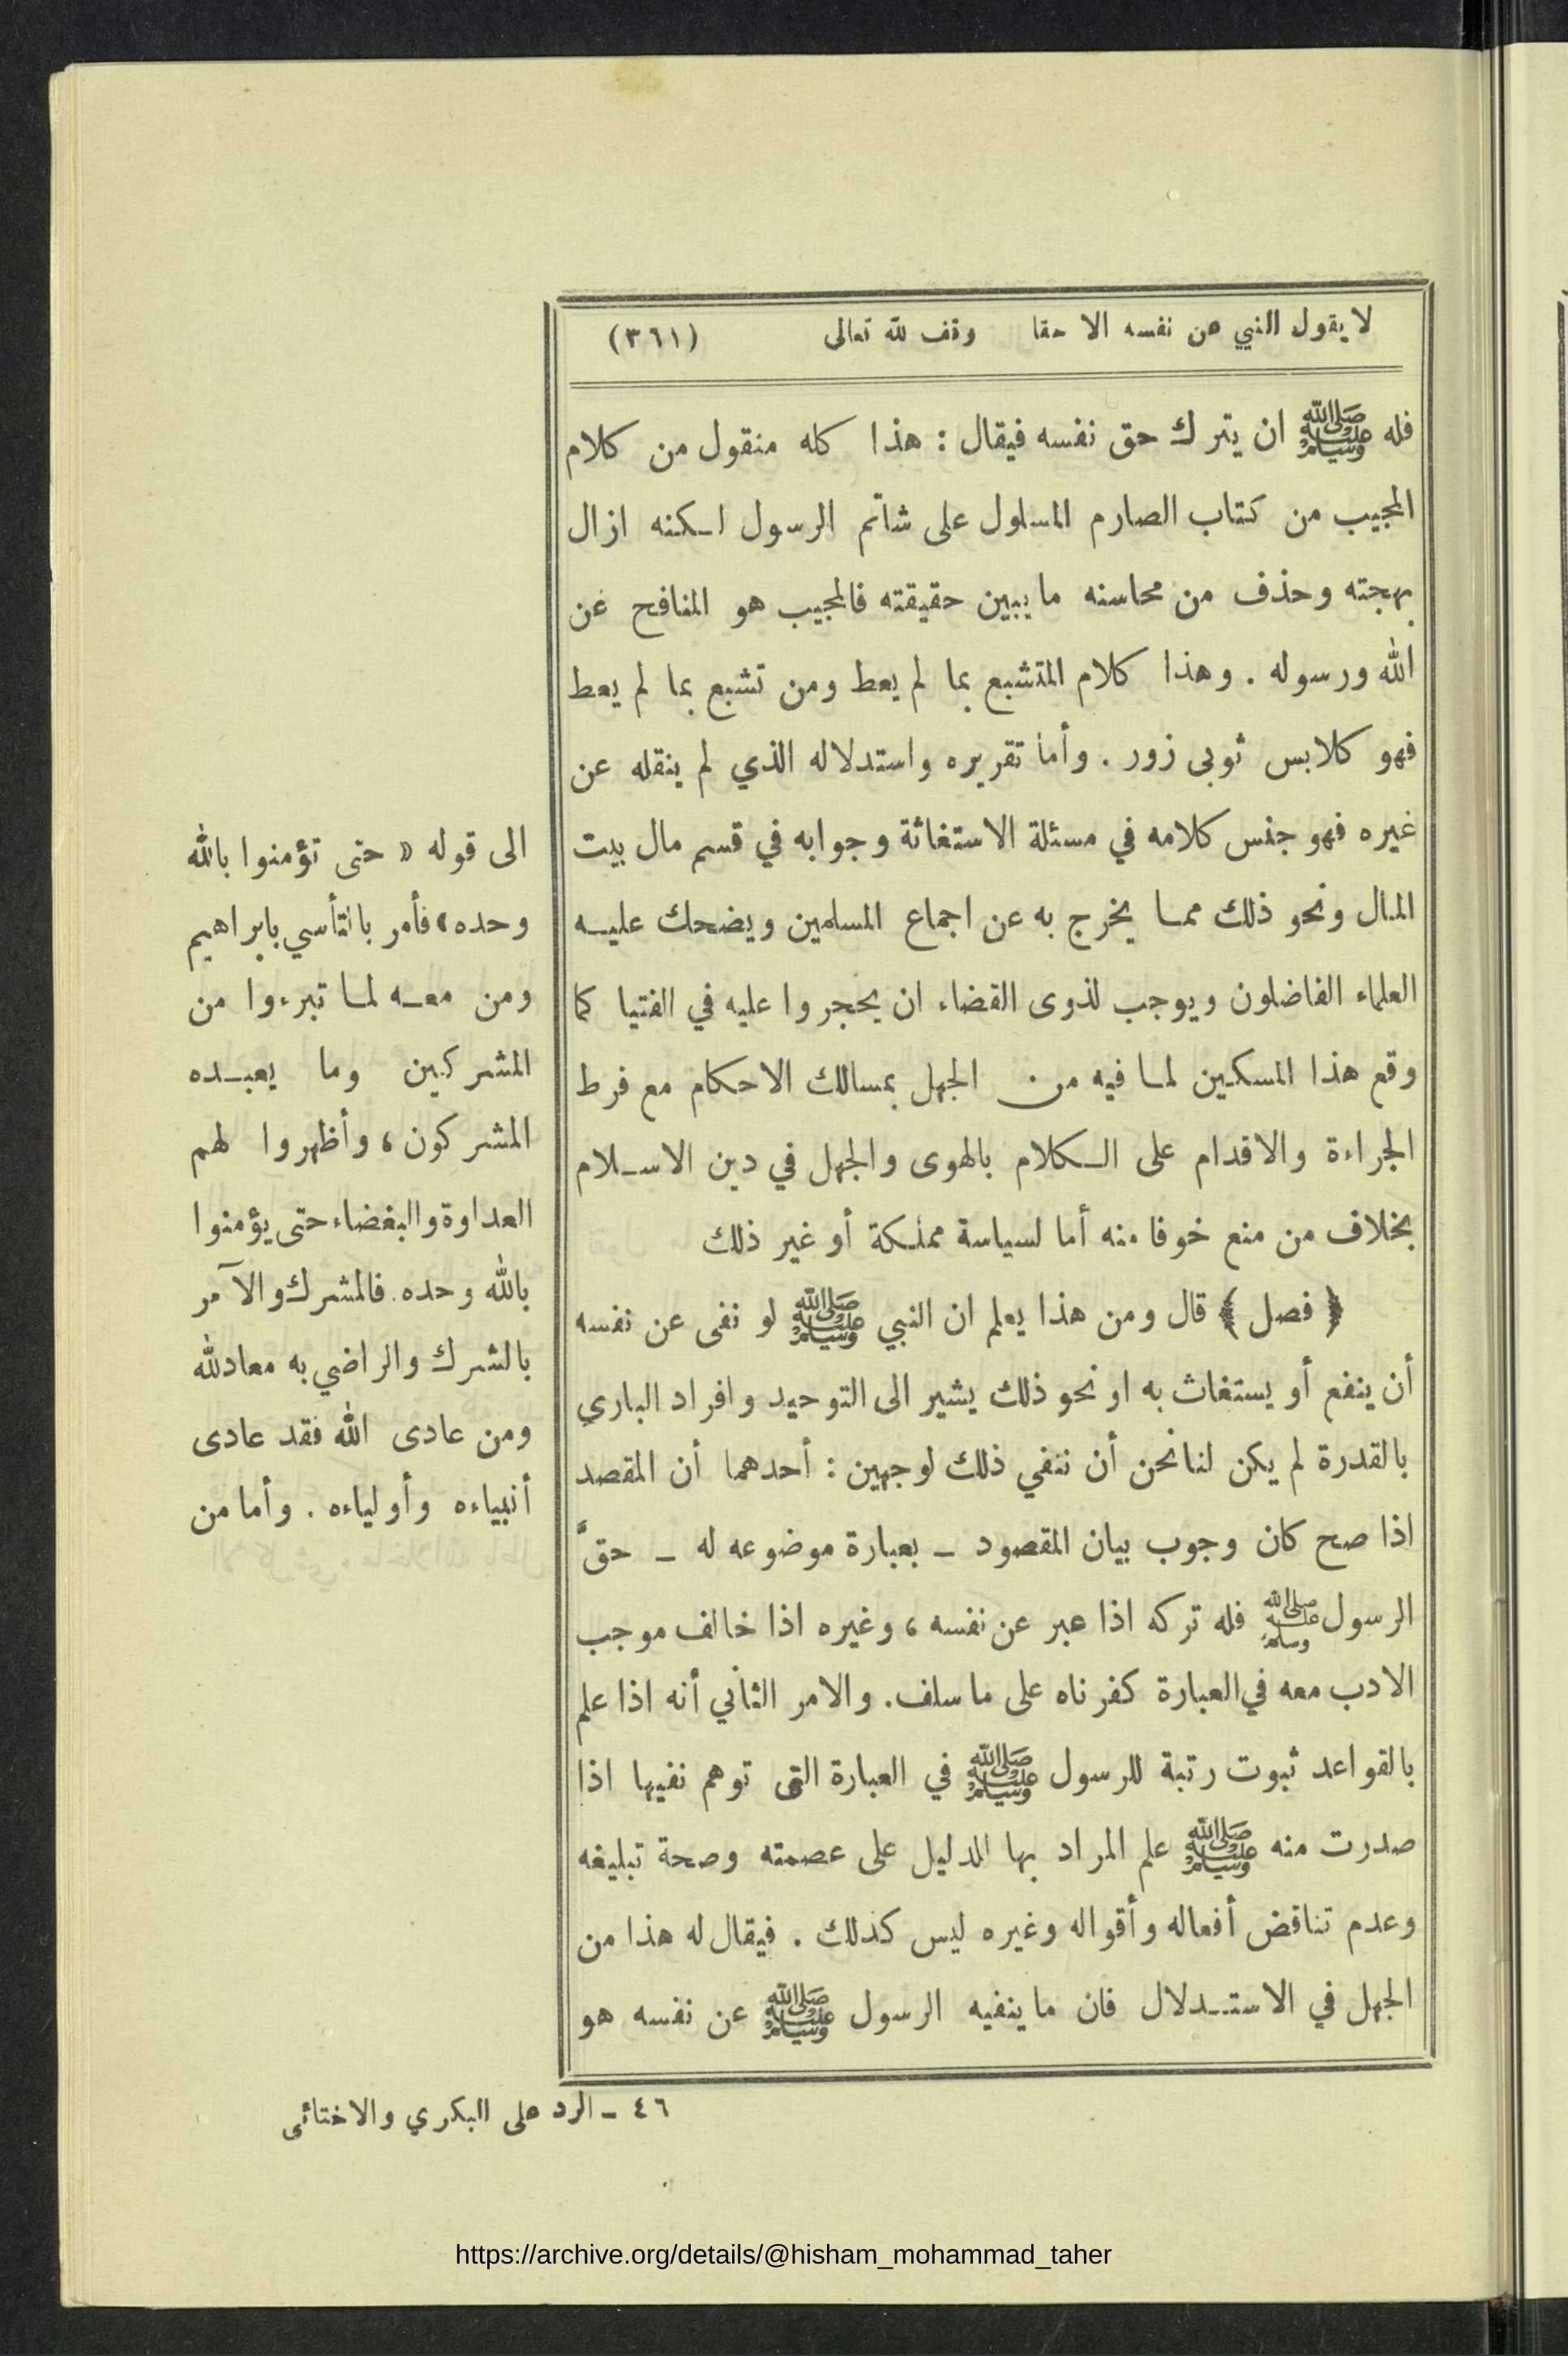 لا يقول النبي عن نفسه الا حقا وقف لله تعالى (٣٦١)
فله ﷺ ان يترك حق نفسه فيقال : هذا كله منقول من كلام
المجيب من كتاب الصارم المسلول على شاتم الرسول لكنه ازال
بهجته وحذف من محاسنه ما يبين حقيقته فالمجيب هو المنافح عن
الله ورسوله . وهذا كلام المتشبع بما لم يعط ومن تشبع بما لم يعط
فهو كلابس ثوبى زور . وأما تقريره واستدلاله الذي لم ينقله عن
غيره فهو جنس كلامه في مسئلة الاستغاثة وجوابه في قسم مال بيت
المال ونحو ذلك مما يخرج به عن اجماع المسلمين ويضحك عليه
العلماء الفاضلون ويوجب لذوى القضاء ان يحجروا عليه في الفتيا كما
وقع هذا المسكين لما فيه من الجهل بمسالك الاحكام مع فرط
الجراءة والاقدام على الكلام بالهوى والجهل في دين الاسلام
بخلاف من منع خوفا منه أما لسياسة مملكة أو غير ذلك
﴿ فصل ﴾ قال ومن هذا يعلم ان النبي ﷺ لو نفى عن نفسه
أن ينفع أو يستغاث به او نحو ذلك يشير الى التوحيد وافراد الباري
بالقدرة لم يكن لنا نحن أن ننفي ذلك لوجهين : أحدهما أن المقصد
اذا صح كان وجوب بيان المقصود ـ بعبارة موضوعه له ـ حقَّ
الرسول ﷺ فله تركه اذا عبر عن نفسه ، وغيره اذا خالف موجب
الادب معه في العبارة كفرناه على ما سلف. والامر الثاني أنه اذا علم
بالقواعد ثبوت رتبة للرسول ﷺ في العبارة التى توهم نفيها اذا
صدرت منه ﷺ علم المراد بها الدليل على عصمته وصحة تبليغه
وعدم تناقض أفعاله وأقواله وغيره ليس كذلك . فيقال له هذا من
الجهل في الاستدلال فان ما ينفيه الرسول ﷺ عن نفسه هو
الى قوله « حتى تؤمنوا بالله
وحده » فأمر بالتأسي بابراهيم
ومن معه لما تبرءوا من
المشركين وما يعبده
المشركون ، وأظهروا لهم
العداوة والبغضاء حتى يؤمنوا
بالله وحده. فالمشرك والآمر
بالشرك والراضي به معاد لله
ومن عادى الله فقد عادى
أنبياءه وأولياءه . وأما من
٤٦ ـ الرد على البكري والاختائى
https://archive.org/details/@hisham_mohammad_taher